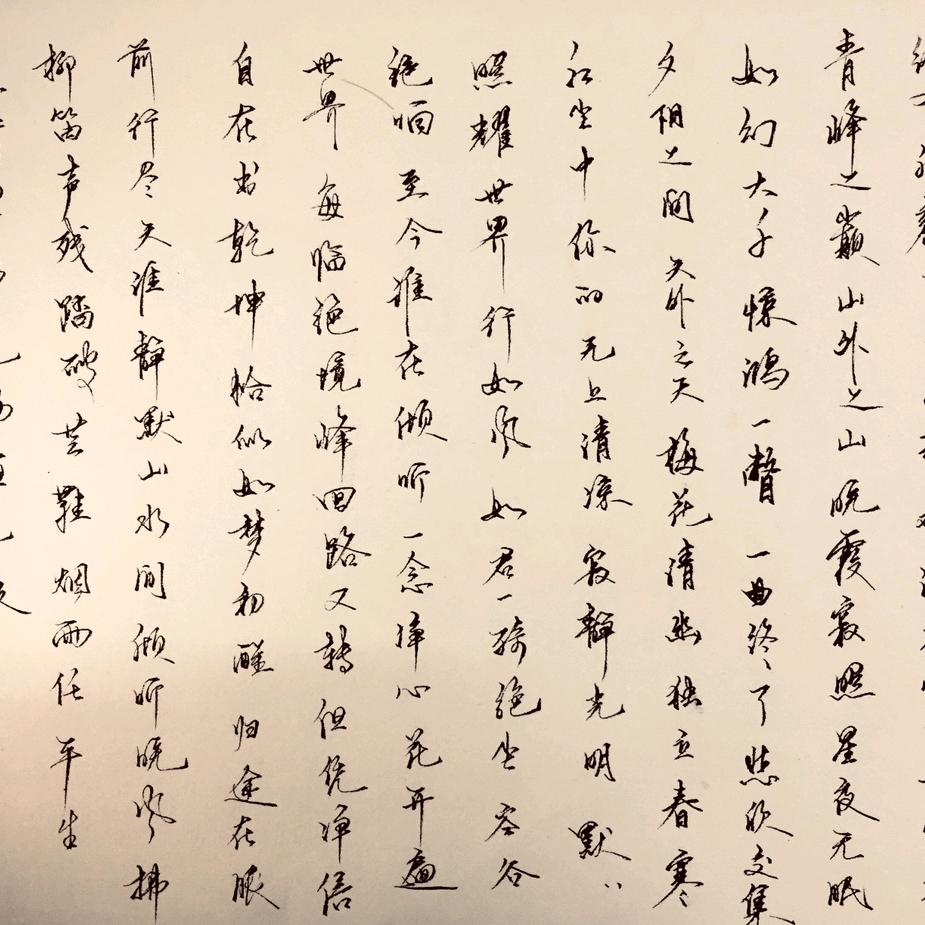 青峰之巅 山外之山 晚霞寂照 星夜无眠
如幻大千 惊鸿一瞥 一曲终了 悲欣交集
夕阴之间 天外云天 梅花清幽 独立春寒
红尘中 你的无上清凉 寂静光明 默默
照耀世界 行如风 如君一骑绝尘 空谷
绝响 至今谁在倾听 一念净心 花开遍
世界 每临绝境 峰回路又转 但凭净信
自在出乾坤 恰似如梦初醒 归途在眼
前 行尽天涯 静默山水间 倾听晚风拂
柳笛声残 踏破芒鞋 烟雨任平生